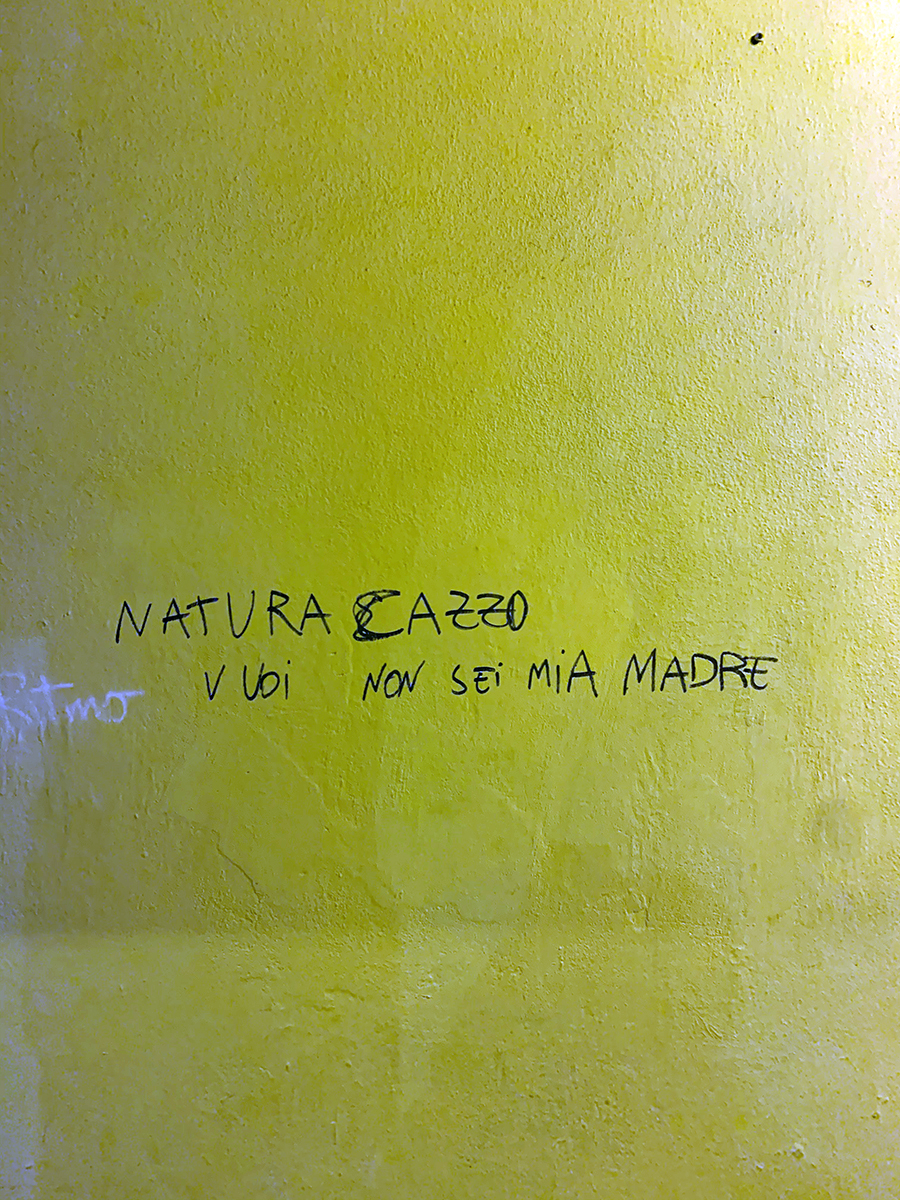 NATURA CAZZO
VUOI NON SEI MIA MADRE
Ritmo